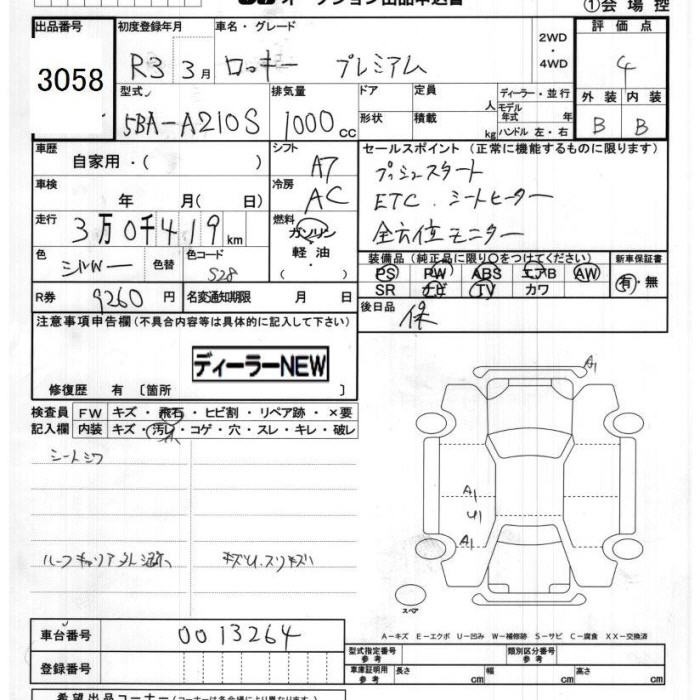 オークション出品申込書
①会場控
出品番号 初度登録年月 車名・グレード 2WD・4WD 評価点
3058 R3 3月 ロッキー プレミアム 4
型式 排気量 ドア 定員 人 ディーラー・並行 外装 内装
5BA-A210S 1000cc 形状 積載 kg モデル年式 年 ハンドル 左・右 B B
車歴 自家用・( ) シフト A7 セールスポイント(正常に機能するものに限ります)
車検 年 月( 日) 冷房 AC プッシュスタート
ETC.シートヒーター
走行 3万0千419km 燃料 ガソリン 軽油・( ) 全方位モニター
色 シルバー 色替 色コード S28 装備品(純正品に限り○をつけてください) 新車保証書
PS PW ABS エアB AW 有・無
SR ナビ TV カワ
R券 9260円 名変通知期限 月 日 後日品 保
注意事項申告欄(不具合内容等は具体的に記入して下さい)
ディーラーNEW
修復歴 有〔箇所 〕
検査員 FW キズ・飛石・ヒビ割・リペア跡・×要
記入欄 内装 キズ・汚レ・コゲ・穴・スレ・キレ・破レ
シートシワ
A1
A1
U1
A1
スペア
A-キズ E-エクボ U-凹み W-補修跡 S-サビ C-腐食 XX-交換済
車台番号 0013264 型式指定番号 参考 類別区分番号 参考
登録番号 車庫証明用 参考 長さ cm 幅 cm 高さ cm
希望出品コーナー(コーナーは各会場により異なります。)